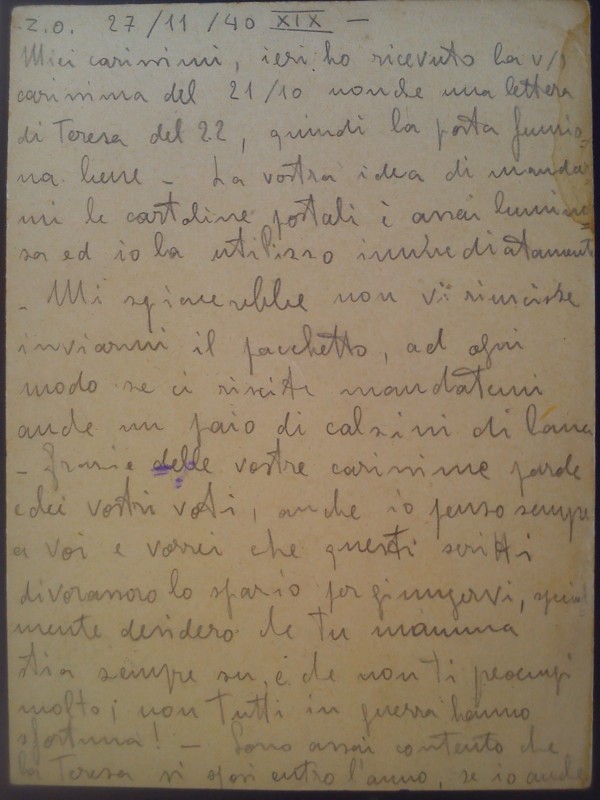 Z.O. 27/11/40 XIX —
Miei carissimi, ieri ho ricevuto la v/s
carissima del 21/10 nonchè una lettera
di Teresa del 22, quindi la posta funzio
na bene — La vostra idea di mandar
mi le cartoline postali è assai lumino
sa ed io la utilizzo immediatamente
— Mi spiacerebbe non vi riuscisse
inviarmi il pacchetto, ad ogni
modo se ci riuscite mandatemi
anche un paio di calzini di lana
— Grazie delle vostre carissime parole
e dei vostri voti, anche io penso sempre
a voi e vorrei che questi scritti
divorassero lo spazio per giungervi, special
mente desidero che tu mamma
stia sempre su, e che non ti preocupi
molto; non tutti in guerra hanno
sfortuna! — Sono assai contento che
la Teresa si sposi entro l'anno, se io anche